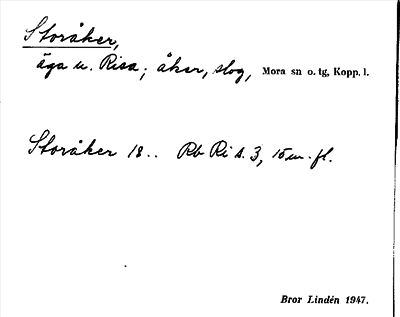 Storåker,
äga u. Risa; åker, slog, Mora sn o. tg, Kopp. l.
Storåker 18.. Rb Ri s. 3, 15 m. fl.
Bror Lindén 1947.